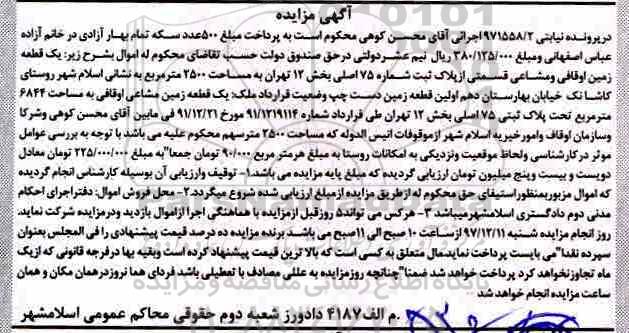 آگهی مزایده
درپرونده نیابتی ۹۷۱۵۵۸/۲ اجرائی آقای محسن کوهی محکوم است به پرداخت مبلغ ۵۰۰عدد سکه تمام بهار آزادی در خانم آزاده
عباس اصفهانی ومبلغ ۳۸۰/۱۲۵/۰۰۰ ریال نیم عشردولتی درحق صندوق دولت حسب تقاضای محکوم له اموال بشرح زیر: یک قطعه
زمین اوقافی ومشاعی قسمتی ازپلاک ثبت شماره ۷۵ اصلی بخش ۱۲ تهران به مساحت ۲۵۰۰ مترمربع به نشانی اسلام شهر روستای
کاشانک خیابان بهارستان دهم اولین قطعه زمین دست چپ وضعیت قرارداد ملک: یک قطعه زمین مشاعی اوقافی به مساحت ۶۸۴۴
مترمربع تحت پلاک ثبتی ۷۵ اصلی بخش ۱۲ تهران طی قرارداد شماره ۹۱/۱۲۱۹۱۱۴ مورخ ۹۱/۱۲/۲۱ فی مابین آقای محسن کوهی وشرکا
وسازمان اوقاف وامورخیریه اسلام شهر ازموقوفات انیس الدوله که مساحت ۲۵۰۰ مترسهم محکوم علیه می باشد با توجه به بررسی عوامل
موثر در کارشناسی ولحاظ موقعیت ونزدیکی به امکانات روستا به مبلغ هرمتر مربع ۹۰/۰۰۰ تومان جمعا"به مبلغ ۲۲۵/۰۰۰/۰۰۰ تومان معادل
دویست و بیست وپنج میلیون تومان ارزیابی گردیده که مبلغ پایه مزایده می باشد.۱- توقیف وارزیابی آن بوسیله کارشناس انجام گردیده
که اموال مزبوربمنظوراستیفای حق محکوم له ازطریق مزایده ازمبلغ ارزیابی شده شروع میگردد.۲- محل فروش اموال: دفتراجرای احکام
مدنی دوم دادگستری اسلامشهرمیباشد ۳- هرکس می تواند۵ روزقبل ازمزایده با هماهنگی اجرا ازاموال بازدید ودرمزایده شرکت نماید.
روز انجام مزایده شنبه ۹۷/۱۲/۱۱ ازساعت ۱۰ صبح الی ۱۱صبح می باشد برنده مزایده ده درصد قیمت پیشنهادی را فی المجلس بعنوان
سپرده نقدا"می بایست پرداخت نماید.مال متعلق به کسی است که بالا ترین قیمت پیشنهاد کرده است وبقیه بها درفرجه قانونی که ازیک
ماه تجاوزنخواهد کرد پرداخت خواهد شد ضمنا"چنانچه روزمزایده به عللی مصادف با تعطیلی باشد فردای هما نروزدرهمان مکان و همان
ساعت مزایده انجام خواهد شد
.م الف ۴۱۸۷ دادورز شعبه دوم حقوقی محاکم عمومی اسلامشهر